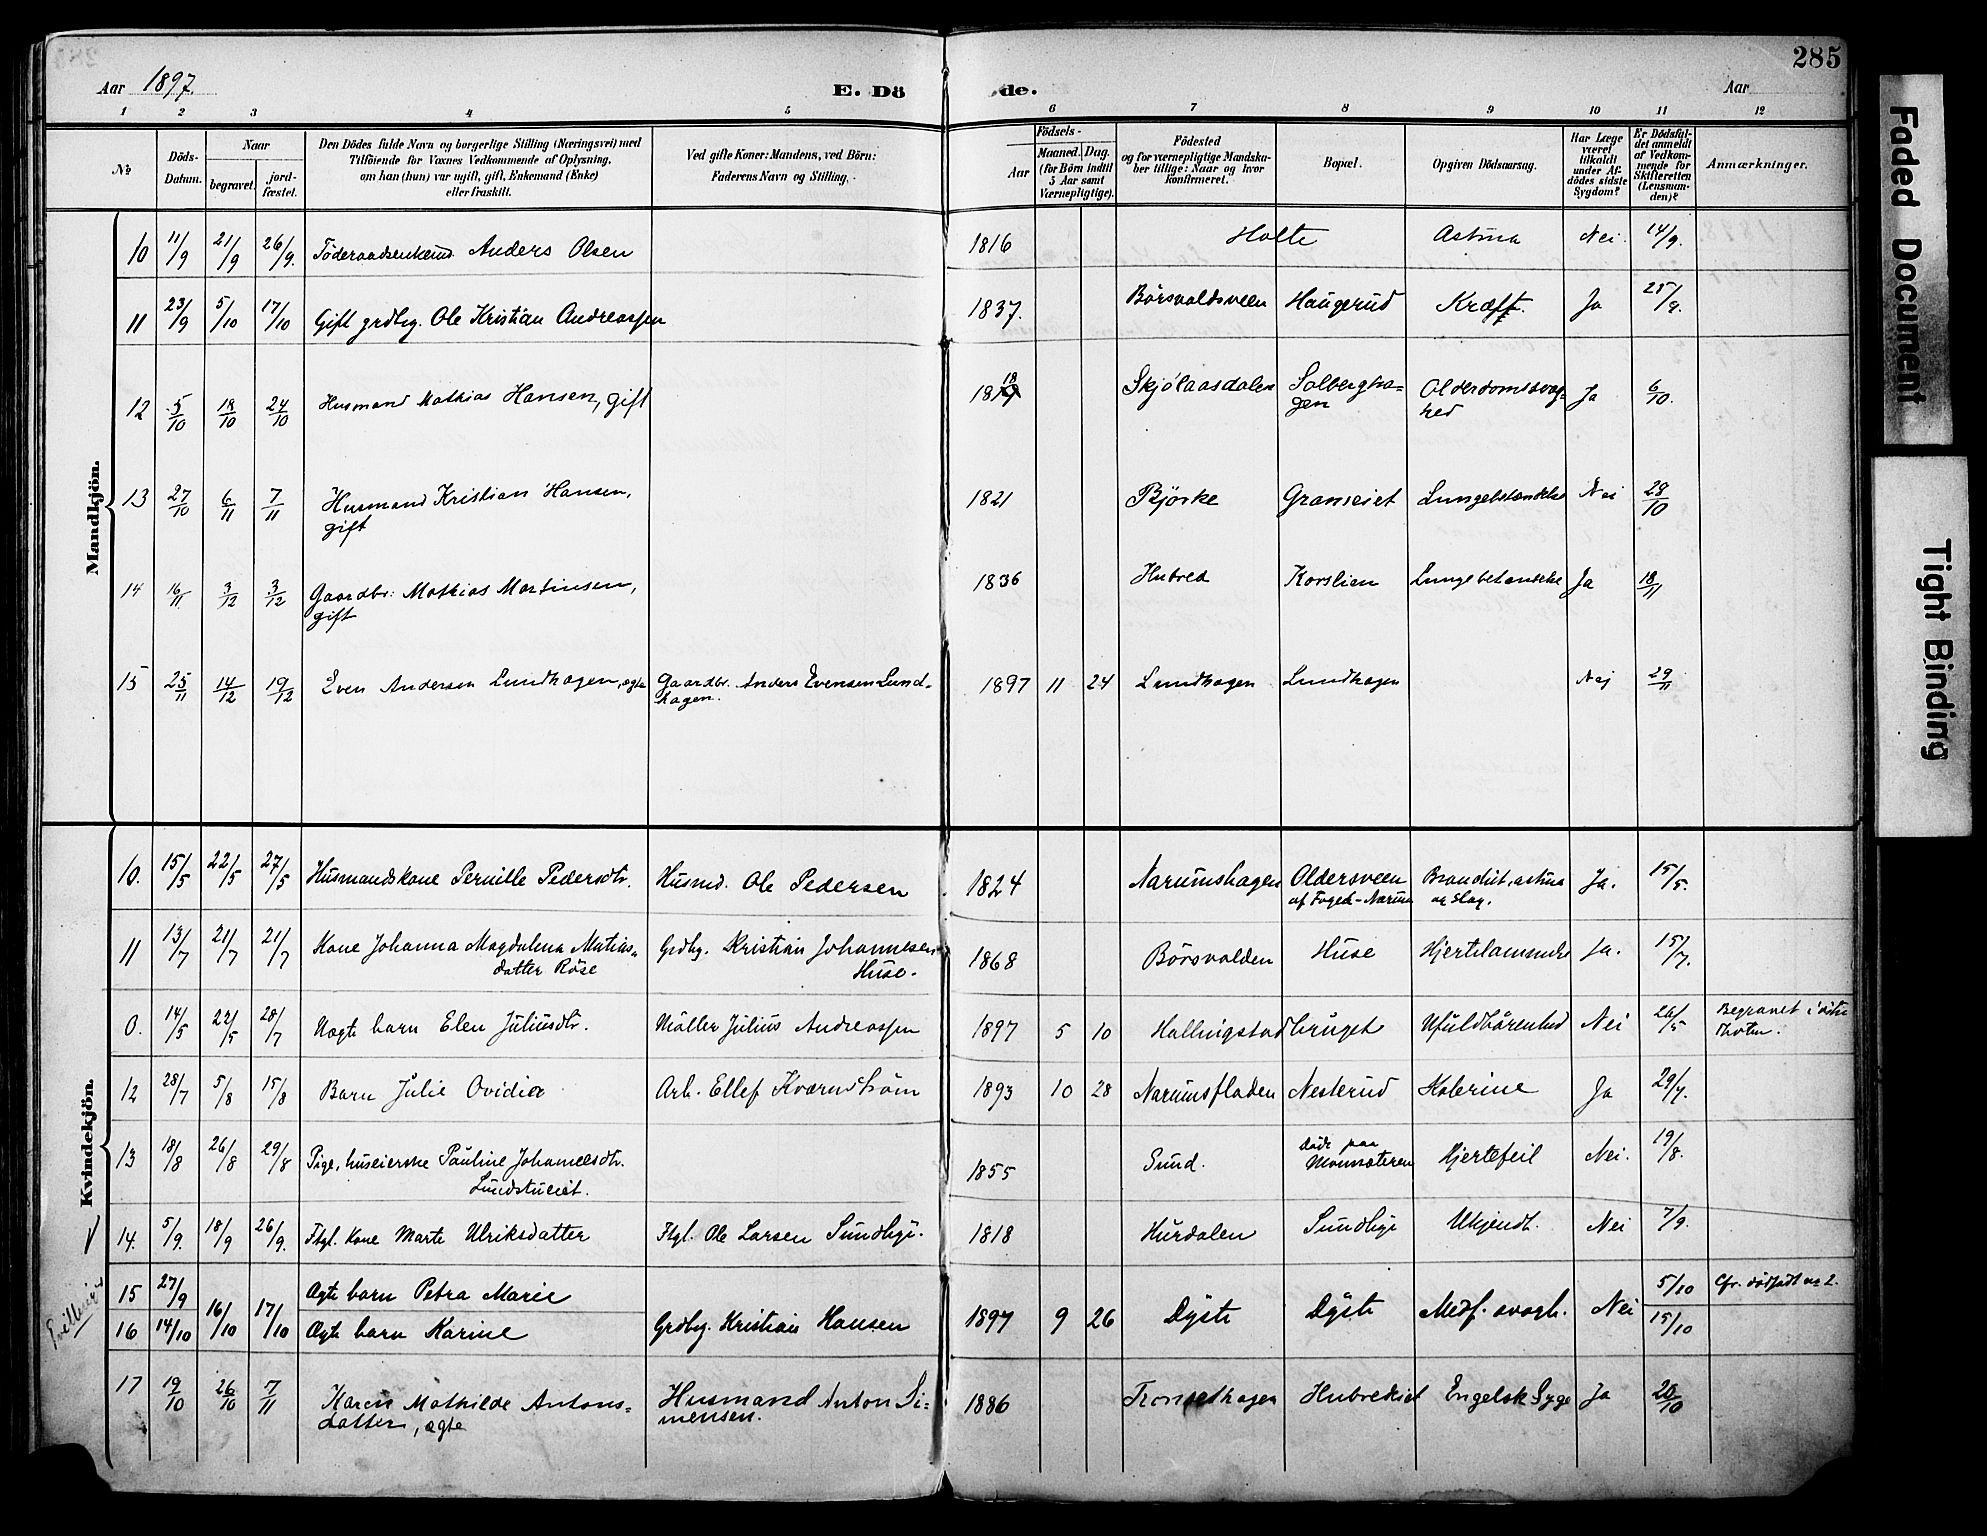 285
Aar 1897.
E. Dö de.
Aar
1 2 3 4 5 6 7 8 9 10 11 12
No
Döds-Datum.
Naar
begravet.
jord-fæstet.
Den Dödes fulde Navn og borgerlige Stilling (Næringsvei) med
Tilföiende for Voxnes Vedkommende af Oplysning,
om han (hun) var ugift, gift, Enkemand (Enke)
eller fraskilt.
Ved gifte Koner: Mandens, ved Börn:
Faderens Navn og Stilling.
Födsels-
Aar
Maaned. Dag.
(for Börn indtil
5 Aar samt
Værnepligtige).
Födested
og for værnepligtige Mandska-
ber tillige: Naar og hvor
konfirmeret.
Bopæl.
Opgiven Dödsaarsag.
Har Læge
været
tilkaldt
under Af-
dödes sidste
Sygdom?
Er Dödsfal-
det anmeldt
af Vedkom-
mende for
Skifteretten
(Lensman-
den)?
Anmærkninger.
Mandkjön.
10 11/9 21/9 26/9. Föderaadsenkem. Anders Olsen 1816 Holte Astma Nei. 14/9.
11 23/9 5/10 17/10 Gift grdbrg. Ole Kristian Andreassen 1837. Börsvoldsveen Haugerud Kræft. Ja 25/9.
12 5/10 18/10 24/10 Husmand Mathias Hansen, gift 1818 Skjölaasdalen Solbergha- Olderdomssvag- Ja 6/10.
gen hed
13 27/10 6/11 7/11 Husmand Kristian Hansen, 1821 Björke Graneiet Lungebetændelse Nei 28/10
gift
14 16/11 3/12 3/12 Gaardbr: Mathias Martinsen, 1836 Hubred Korslien Lungebetændelse Ja 18/11
gift
15 25/11 14/12 19/12 Even Andersen Lundhagen, ægte Gaardbr. Anders Evensen Lund- 1897 11 24 Lundhagen Lundhagen Nej 29/11
hagen.
Kvindekjön.
10. 15/5 22/5 27/5 Husmandskone Pernille Pedersdtr. Husmd. Ole Pedersen 1824 Narumshagen Oldersveen Brandit, astma Ja. 15/5.
af Foged-Narum og Slag.
11 13/7 21/7 21/7 Kone Johanna Magdalena Matias- Grdbg. Kristian Johannesen 1868 Börsvolden Huse Hjertelammelse Ja. 15/7.
datter Röse Huse.
0. 14/5 22/5 28/7 Uægte barn Elen Juliusdtr. Möller Julius Andreassen 1897 5 10 Hallingstadbruget Ufuldbårenhed Nei 26/5 Begravet i östre
Thoten.
12 28/7 5/8 15/8 Barn Julie Ovidia Arb. Ellef Kværnström 1893 10 28 Narumsfladen Nesterud Kolerine Ja 29/7.
13 18/8 26/8 29/8 Pige, huseierske Pauline Johannesdtr. 1855 Sund. döde paa Hjertefeil Nei. 19/8.
Lundstueiet.
14. 5/9. 18/9 26/9. Ftgl. Kone Marte Ulriksdatter Ftgl. Ole Larsen Sundbye. 1818 Hurdalen Sundbye Ukjendt. Nei 7/9.
15 27/9 16/10 17/10 Ægte barn Petra Marie 5/10 Cfr. dödfödt no 2.
Grdbg. Kristian Hansen 1897 9 26 Dyste Dyste Medf. svagh. Nei
16 14/10 Ægte barn Karine 15/10
17 19/10 26/10 7/11 Karen Mathilde Antons- Husmand Anton Si- 1886 Tronsethagen Hubredeiet Engelsk Syge Ja 20/10
datter, ægte mensen.
Faded Document
Tight Binding